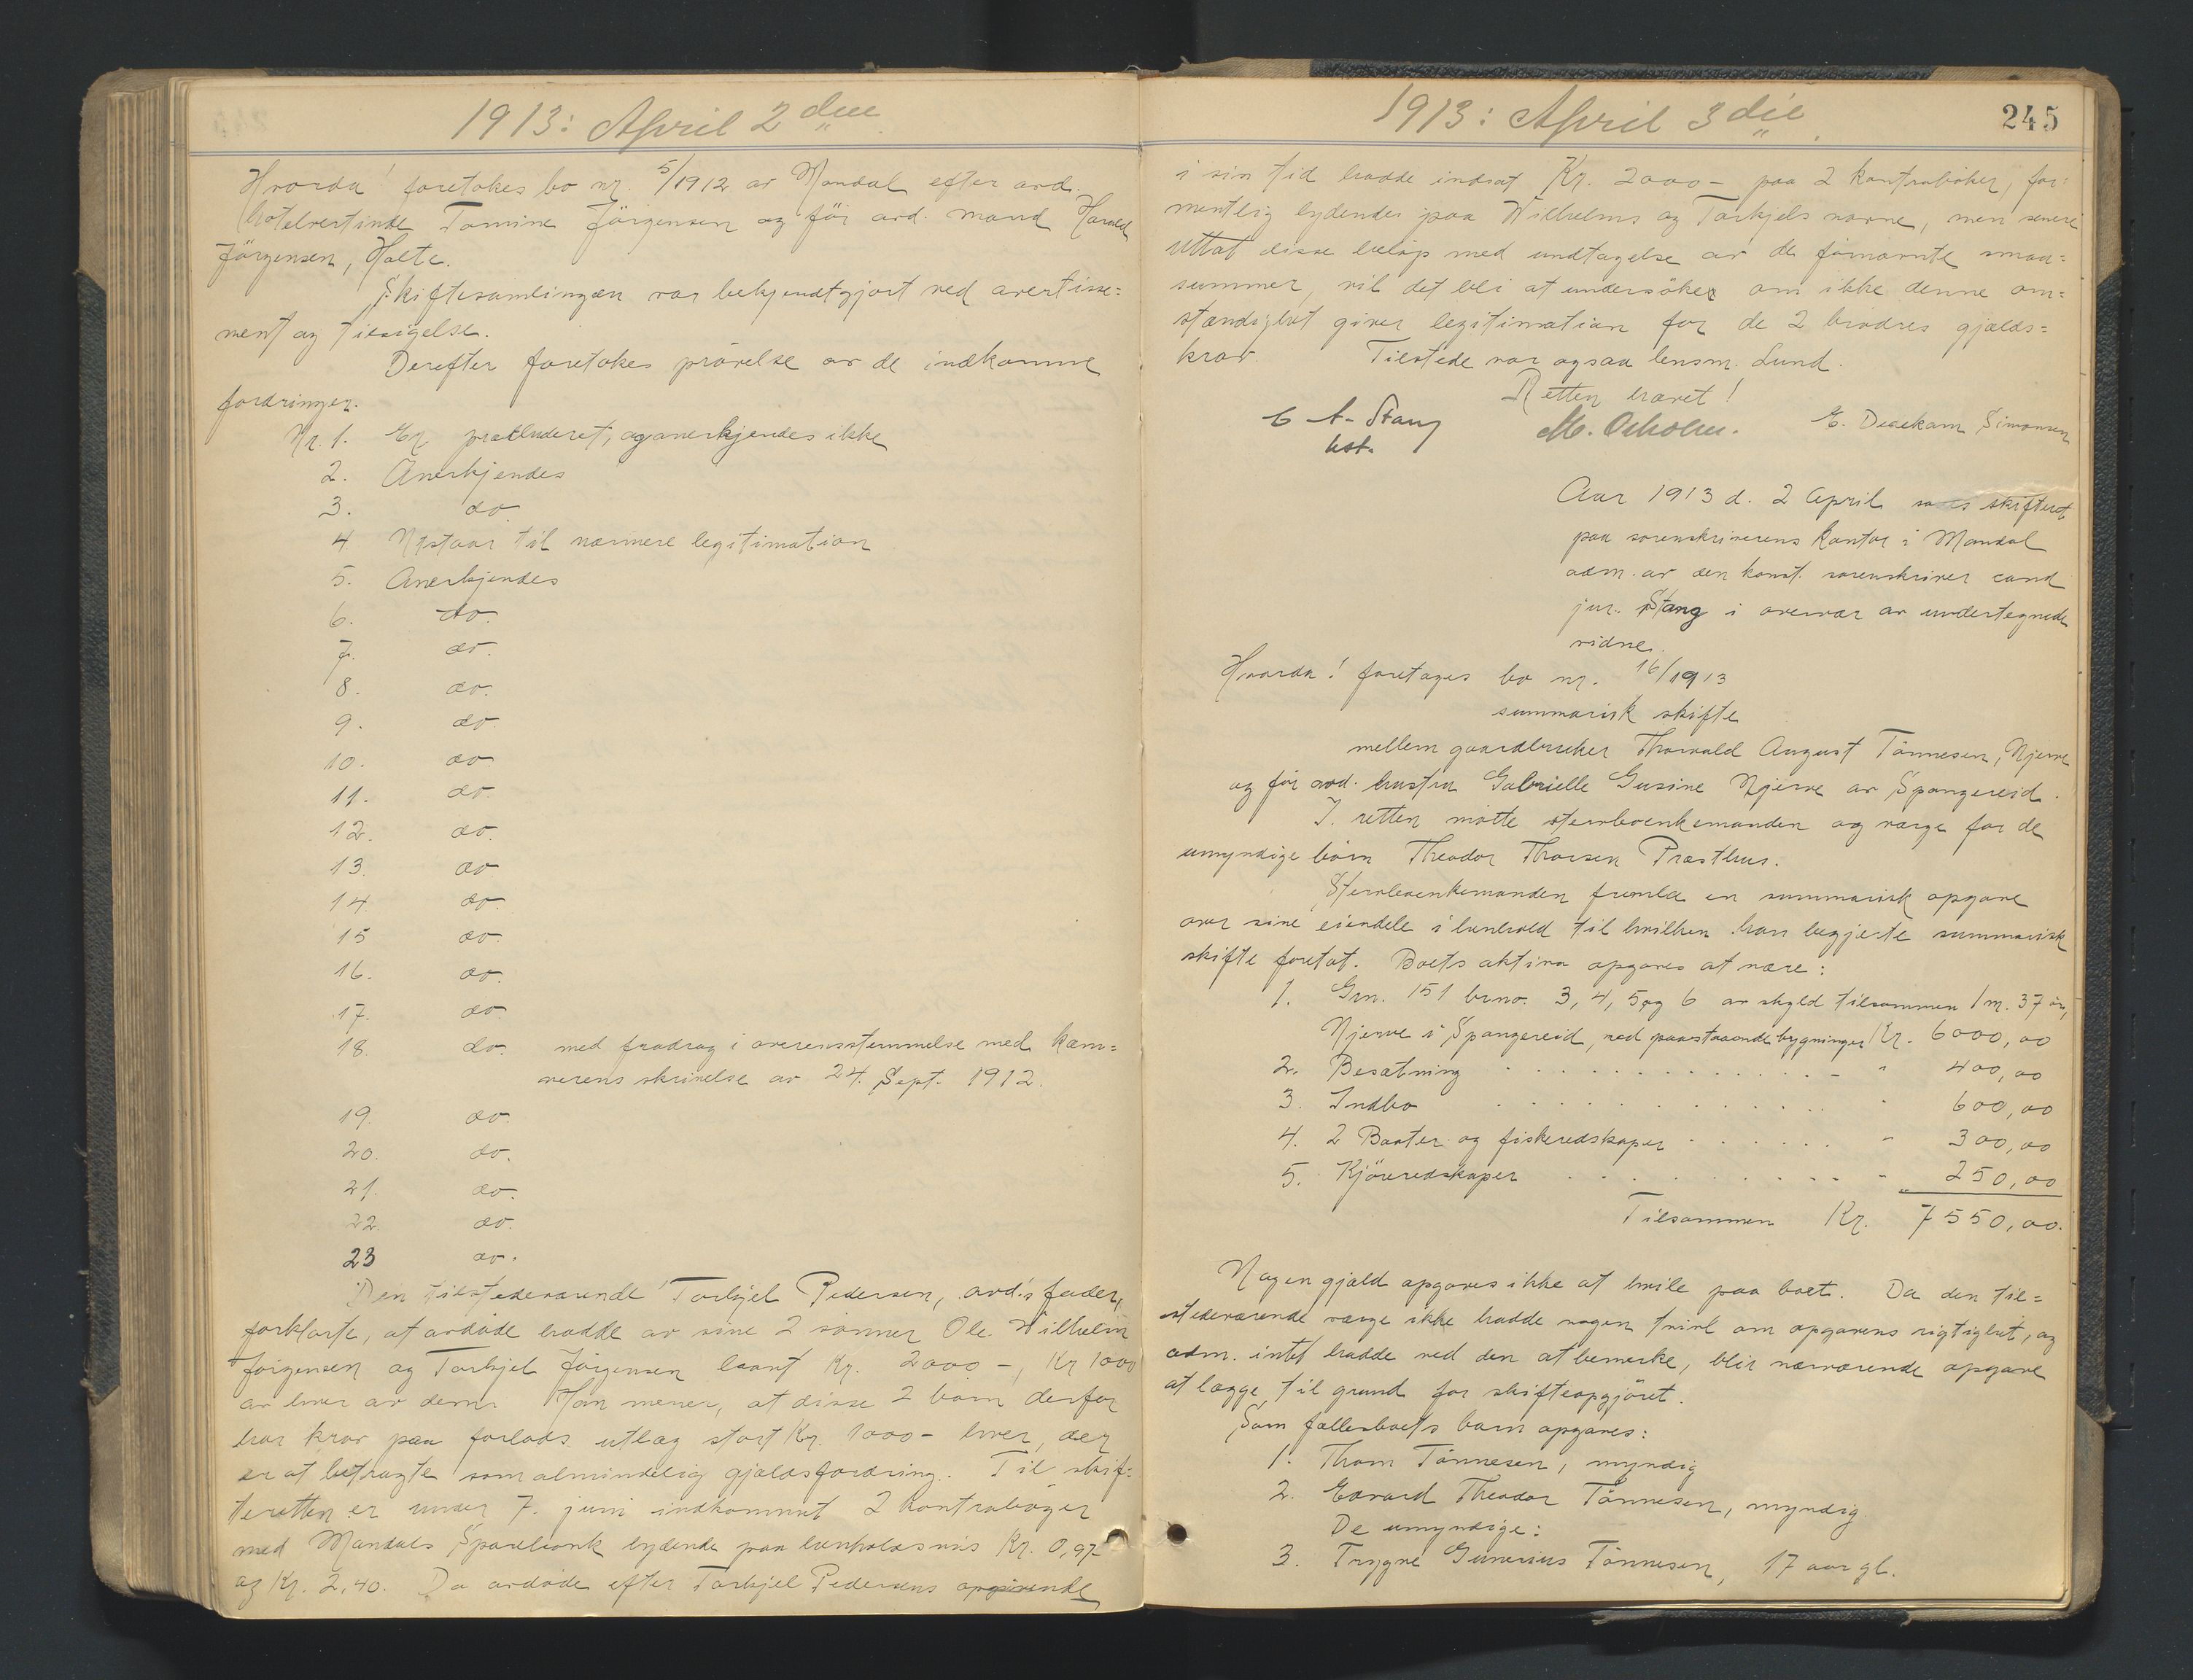 1913: April 2den
Hvorda! foretokes bo nr. 5/1912 av Mandal efter avd.
hotelvertinde Tomine Jörgensen og för avd. mand Harald
Jörgensen, Holte.
Skiftesamlingen var bekjendtgjort ved avertisse=
ment og tilsigelse.
Derefter foretokes prövelse av de indkomne
fordringer.
Nr. 1. Er præcluderet, og anerkjendes ikke
2. Anerkjendes
3. do
4 Utstaar til nærmere legitimation
5. Anerkjendes
6. do.
7. do.
8. do.
9. do.
10. do
11. do.
12. do.
13. do
14. do.
15 do.
16. do.
17. do
18 do. med fradrag i overensstemmelse med kæm=
nerens skrivelse av 24. Sept. 1912.
19. do.
20. do.
21. do.
22. do.
23 do.
Den tilstedeværende Torkjel Pedersen, avd.s fader,
forklarte, at avdöde hadde av sine 2 sönner Ole Wilhelm
Jörgensen og Torkjel Jörgensen laant Kr. 2000 -, Kr 1000
av hver av dem. Han mener, at disse 2 börn derfor
har krav paa forlods utlæg stort Kr. 1000- hver, der
er at betragte som almindelig gjældsfordring. Til skif=
teretten er under 7. juni indkommet 2 kontraböger
med Mandals Sparebank lydende paa henholdsvis Kr. 0,97-
og Kr. 2,40. Da avdöde efter Torkjel Pedersens opgivende
1913: April 3die
245
i sin tid hadde indsat Kr. 2000- paa 2 kontraböker, for=
mentlig lydendes paa Wilhelms og Torkjels navne, men senere
uttat disse belöp med undtagelse av de fornævnte smaa=
summer, vil det bli at undersöker om ikke denne om=
stændighet giver legitimation for de 2 brödres gjælds=
krav. Tilstede var ogsaa lensm. Lund.
Retten hævet!
C A. Stang
kst.
M. Osholm. E. Desekam Simonsen
Aar 1913 d. 2 April sattes skifteret
paa sorenskriverens kontor i Mandal
adm. av den konst. sorenskriver cand
jur. Stang i overvær av undertegnede
vidne.
Hvorda! foretages bo nr. 16/1913
summarisk skifte
mellem gaardbruker Thorvald August Tönnesen, Njerve
og för avd. hustru Gabrielle Gusine Njerve av Spangereid.
I retten mötte sterboenkemanden og værge for de
umyndige börn Theodor Thorsen Præsthus.
Sterboenkemanden fremla en summarisk opgave
over sine eiendele i henhold til hvilken han begjærte summarisk
skifte foretat. Boets aktiva opgaves at være:
1. Grn. 151 brno. 3, 4, 5 og 6 av skyld tilsammen 1 m. 37 öre,
Njerve i Spangereid, med paastaaende bygninger Kr. 6000,00
2. Besætning - " 400,00
3. Indbo " 600,00
4. 2 Baater og fiskeredskaper " 300,00
5. Kjöreredskaper " 250,00
Tilsammen Kr. 7550,00.
Nogen gjæld opgaves ikke at hvile paa boet. Da den til=
stedeværende værge ikke hadde nogen tvivl om opgavens rigtighet, og
adm. intet hadde ved den at bemerke, blir nærværende opgave
at lægge til grund for skifteopgjöret.
Som fællesboets barn opgaves:
1. Thom Tönnesen, myndig
2. Edvard Theodor Tönnesen, myndig
De umyndige:
3. Trygve Gunerius Tönnesen, 17 aar gl.